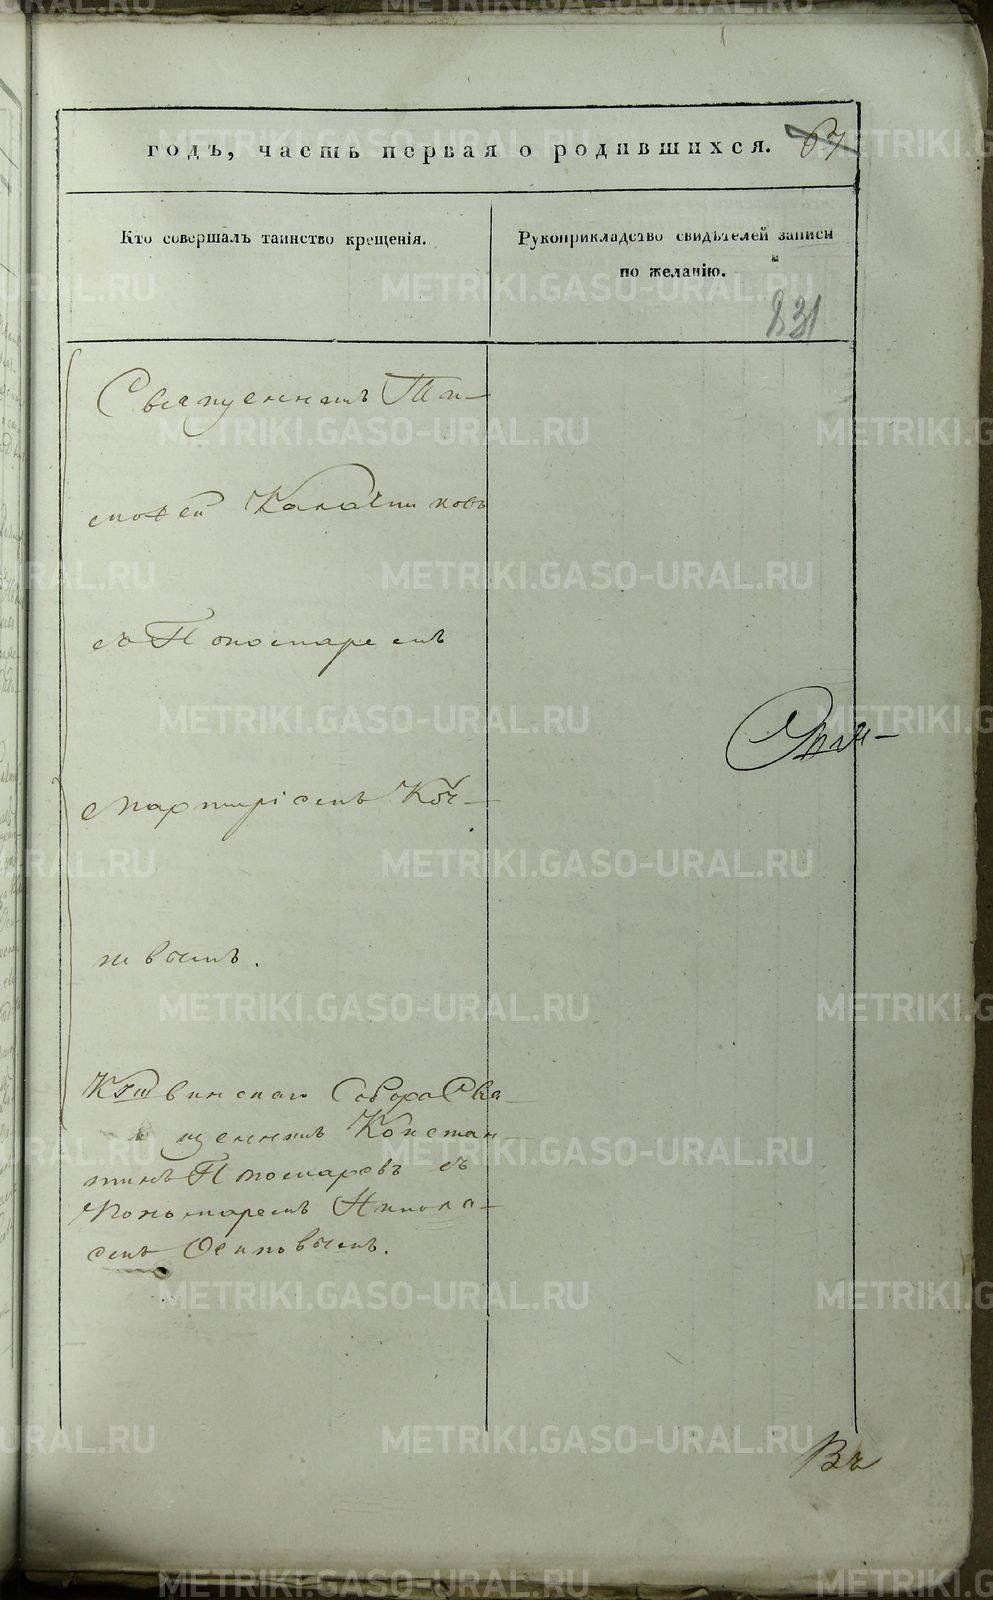 годъ, часть первая о родившихся. 67
Кто совершалъ таинство крещенія.
Рукоприкладство свидѣтелей записи
по желанію.
831
Священникъ Ти-
моѳей Калачниковъ
съ Пономаремъ
Мартиріемъ Коч-
невымъ.
Кушвинскаго Собора Свя-
щенникъ Констан-
тинъ Пономаревъ съ
Пономаремъ Никола-
емъ Осиповымъ.
Въ
METRIKI.GASO-URAL.RU